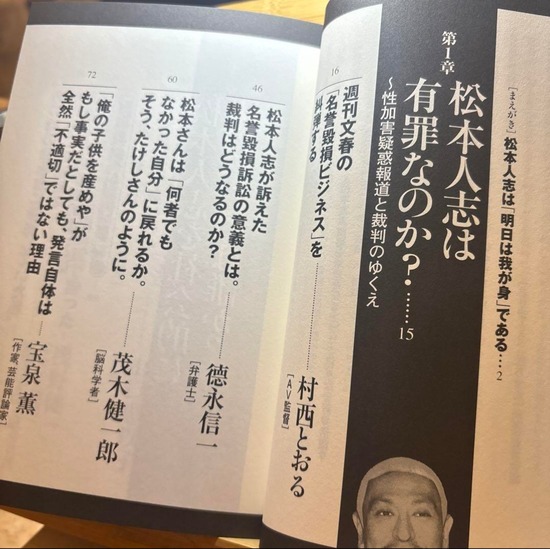 [まえがき] 松本人志は「明日は我が身」である…2
第1章
松本人志は
有罪なのか?……15
〜性加害疑惑報道と裁判のゆくえ
16
週刊文春の
「名誉毀損ビジネス」を
糾弾する
村西とおる
[AV監督]
46
松本人志が訴えた
名誉毀損訴訟の意義とは。
裁判はどうなるのか?
徳永信一
[弁護士]
60
松本さんは「何者でも
なかった自分」に戻れるか。
そう、たけしさんのように。
茂木健一郎
[脳科学者]
72
「俺の子供を産めや」が
もし事実だとしても、発言自体は
全然「不適切」ではない理由
宝泉薫
[作家、芸能評論家]